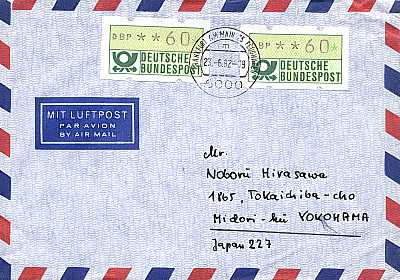 DBP **60*
DEUTSCHE
BUNDESPOST
DBP **60*
DEUTSCHE
BUNDESPOST
FRANKFURT AM MAIN
23.-6.82-19
6000
MIT LUFTPOST
PAR AVION
BY AIR MAIL
Mr.
Noboru Hirasawa
1865, Tokaichiba-cho
Midori-ku YOKOHAMA
Japan 227